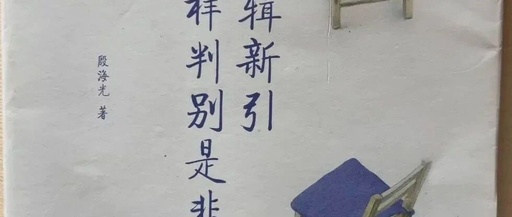 辑新引
样判别是非
殷海光 著